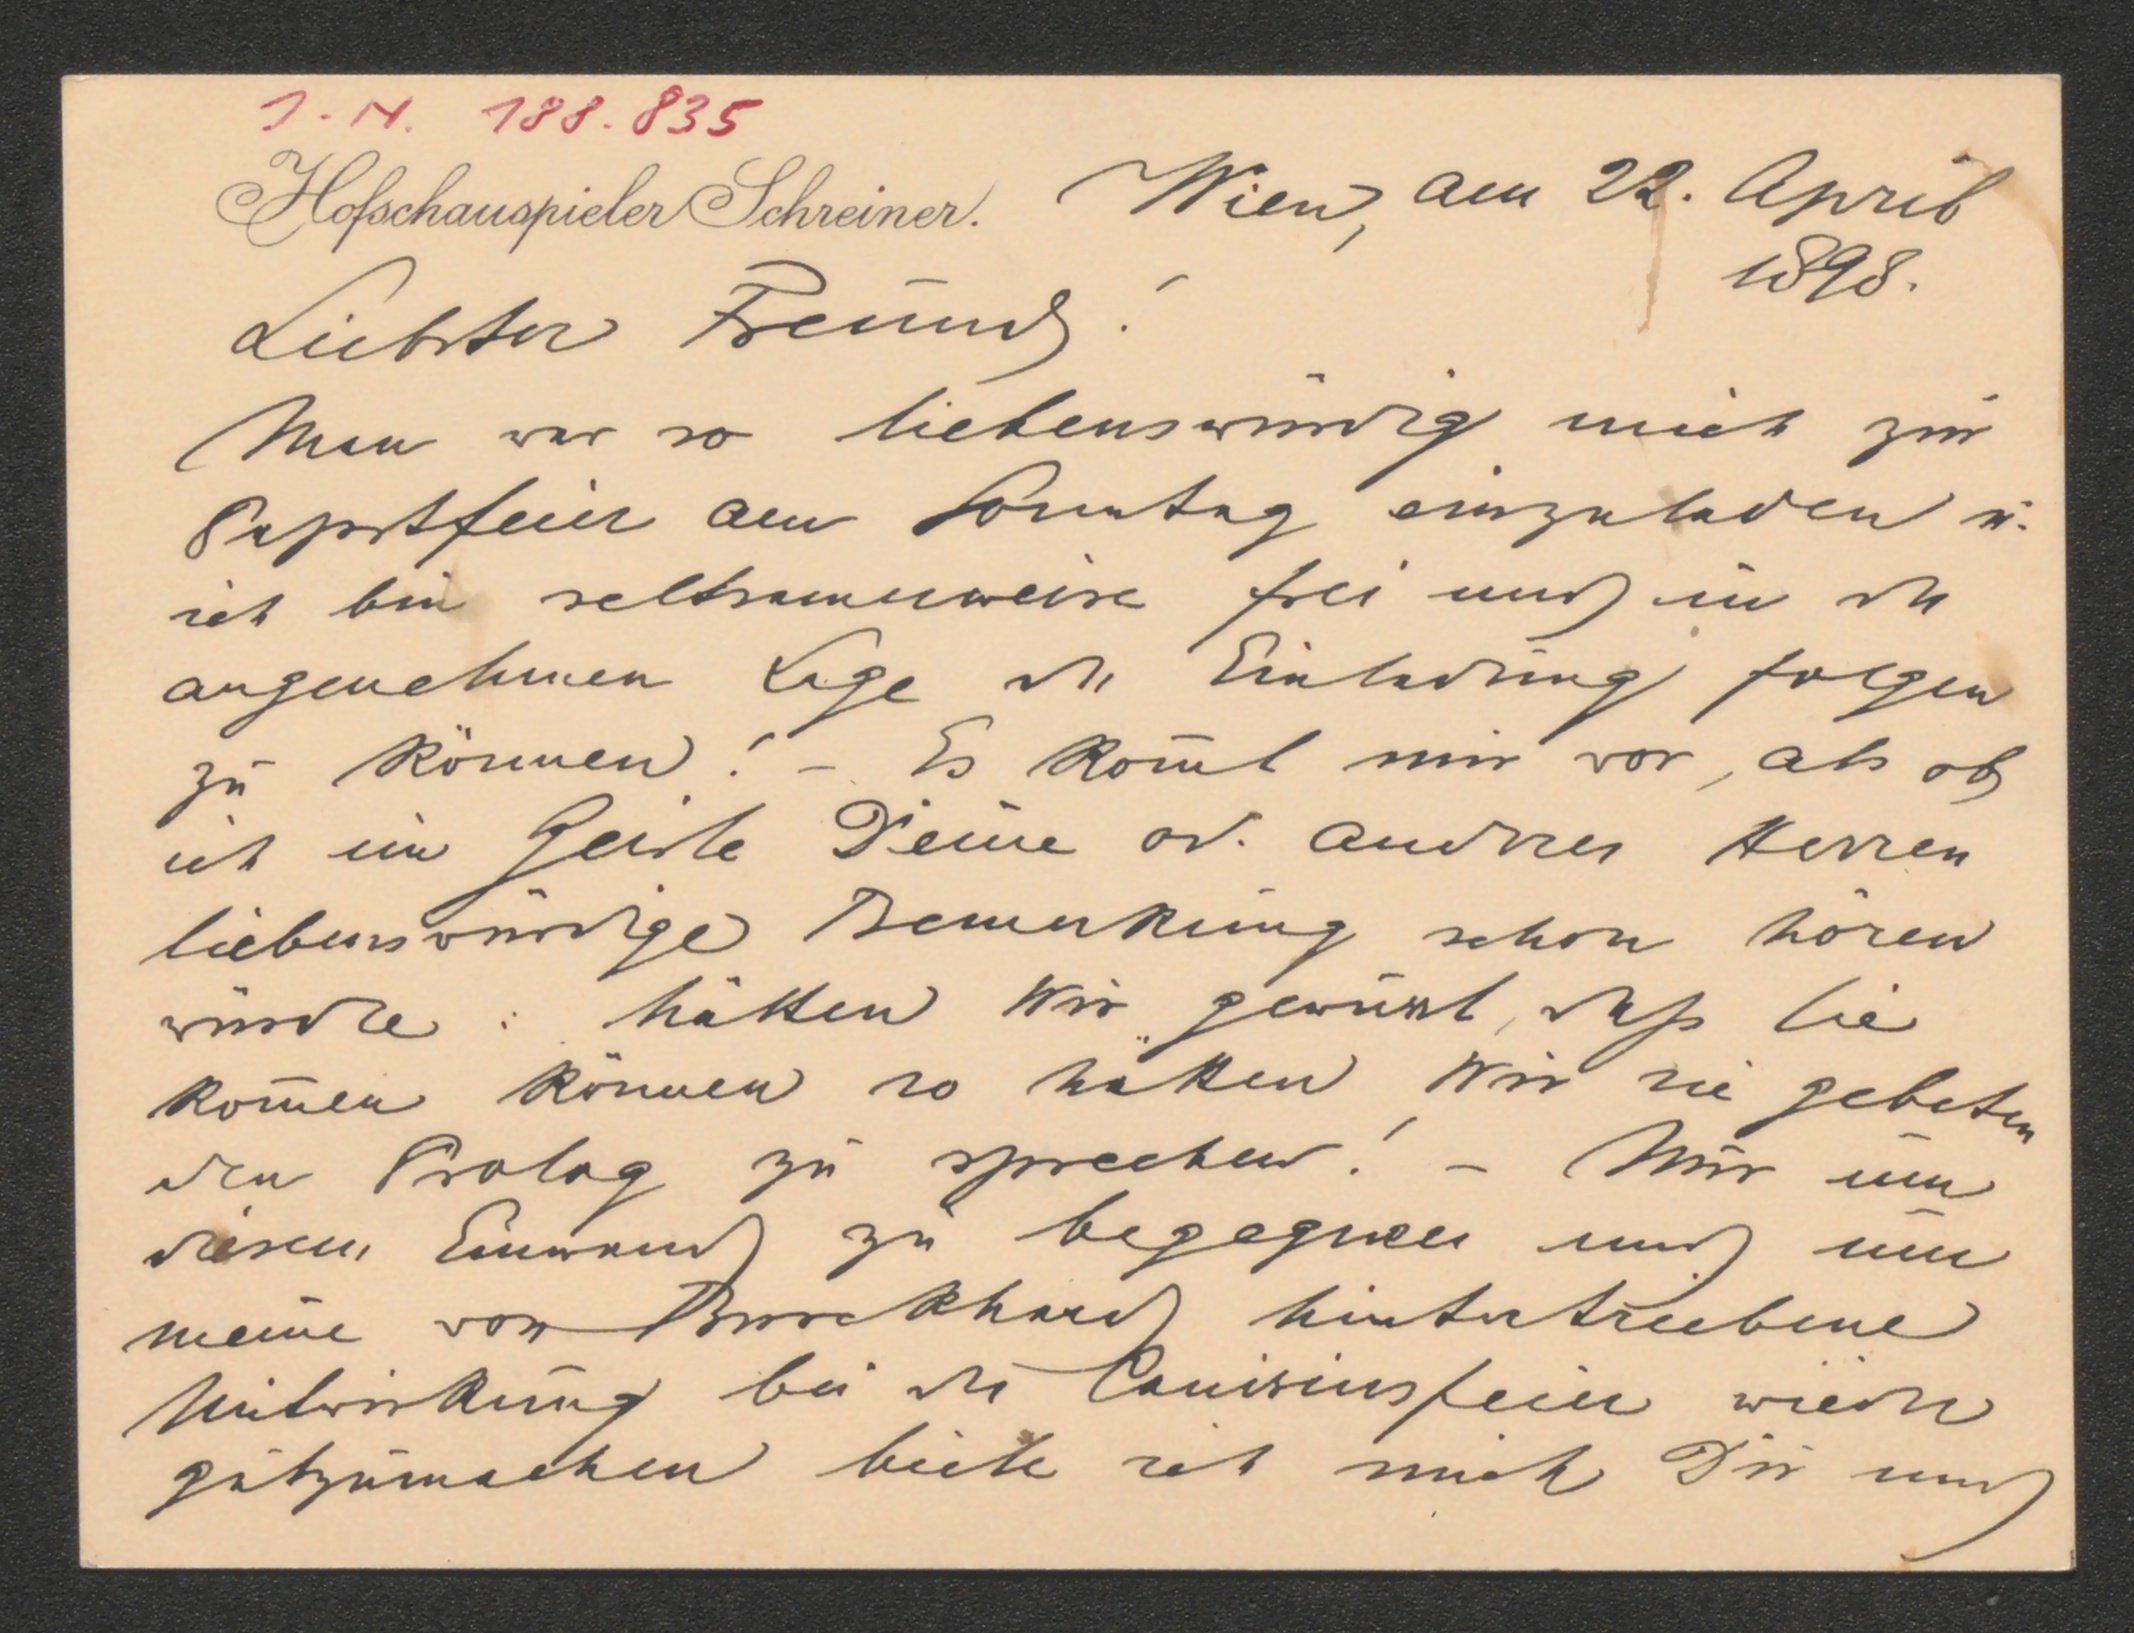 J. N. 188.835
Hofschauspieler Schreiner.
Wien, am 22. April
1898.
Liebster Freund!
Man war so liebenswürdig mich zur
Papstfeier am Sonntag einzuladen u.
ich bin seltsamerweise frei und in der
angenehmen Lage der Einladung folgen
zu können! - Es kom̅t mir vor, als ob
ich im Geiste Deine od. andrer Herren
liebenswürdige Bemerkung schon hören
würde: hätten wir gewusst, daß Sie
kom̅en können so hätten wir sie gebeten
den Prolog zu sprechen! - Nur um
diesem Einwand zu begegnen und um
meine von Burckhard hintertriebene
Mitwirkung bei der Canisiusfeier wieder
gutzumachen biete ich mich Dir und